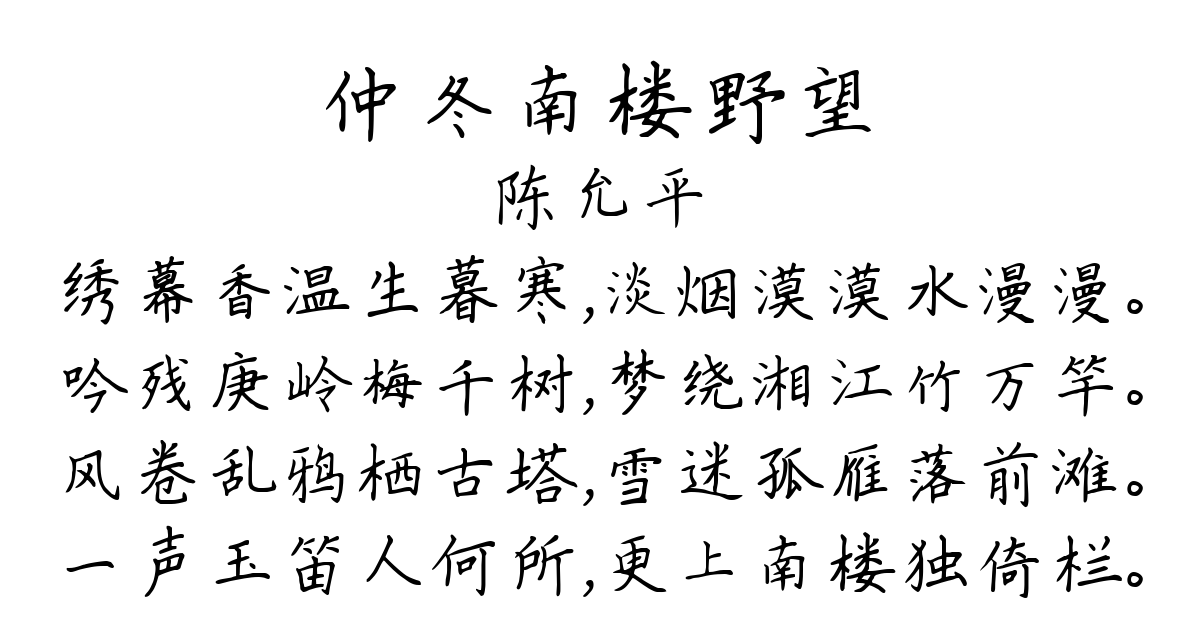 仲冬南楼野望
陈允平
绣幕香温生暮寒,淡烟漠漠水漫漫。
吟残庚岭梅千树,梦绕湘江竹万竿。
风卷乱鸦栖古塔,雪迷孤雁落前滩。
一声玉笛人何所,更上南楼独倚栏。